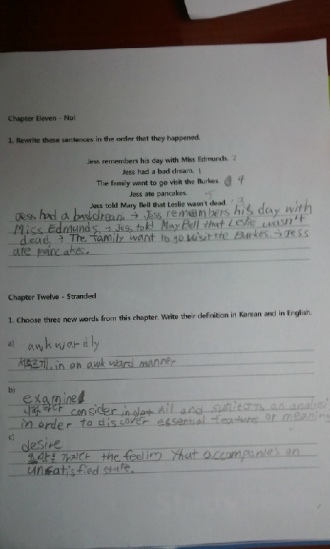 Chapter Eleven - No!
1. Rewrite these sentences in the order that they happened.
Jess remembers his day with Miss Edmunds. 2
Jess had a bad dream. 1
The family went to go visit the Burkes. 4
Jess ate pancakes. 5
Jess told Mary Bell that Leslie wasn't dead. 3
Jess had a bad dream → Jess remembers his day with
Miss Edmunds → Jess told May Bell that Leslie wasn't
dead → The family want to go visit the Burkes → Jess
ate pancakes.
Chapter Twelve - Stranded
1. Choose three new words from this chapter. Write their definition in Korean and in English.
a)
awkwardly
서투르게, in an awkward manner
b)
examine
consider in and subject as an
in order to discover essential feature or meaning
c)
desire
the feeling that accompanies an
unsatisfied state.